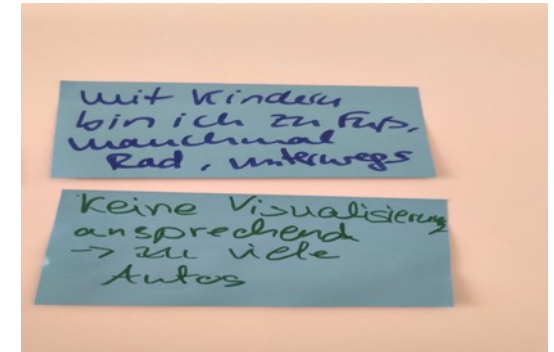 mit Kindern
bin ich zu Fuß,
manchmal
Rad, unterwegs
Keine Visualisierung
ansprechend
→ zu viele
Autos